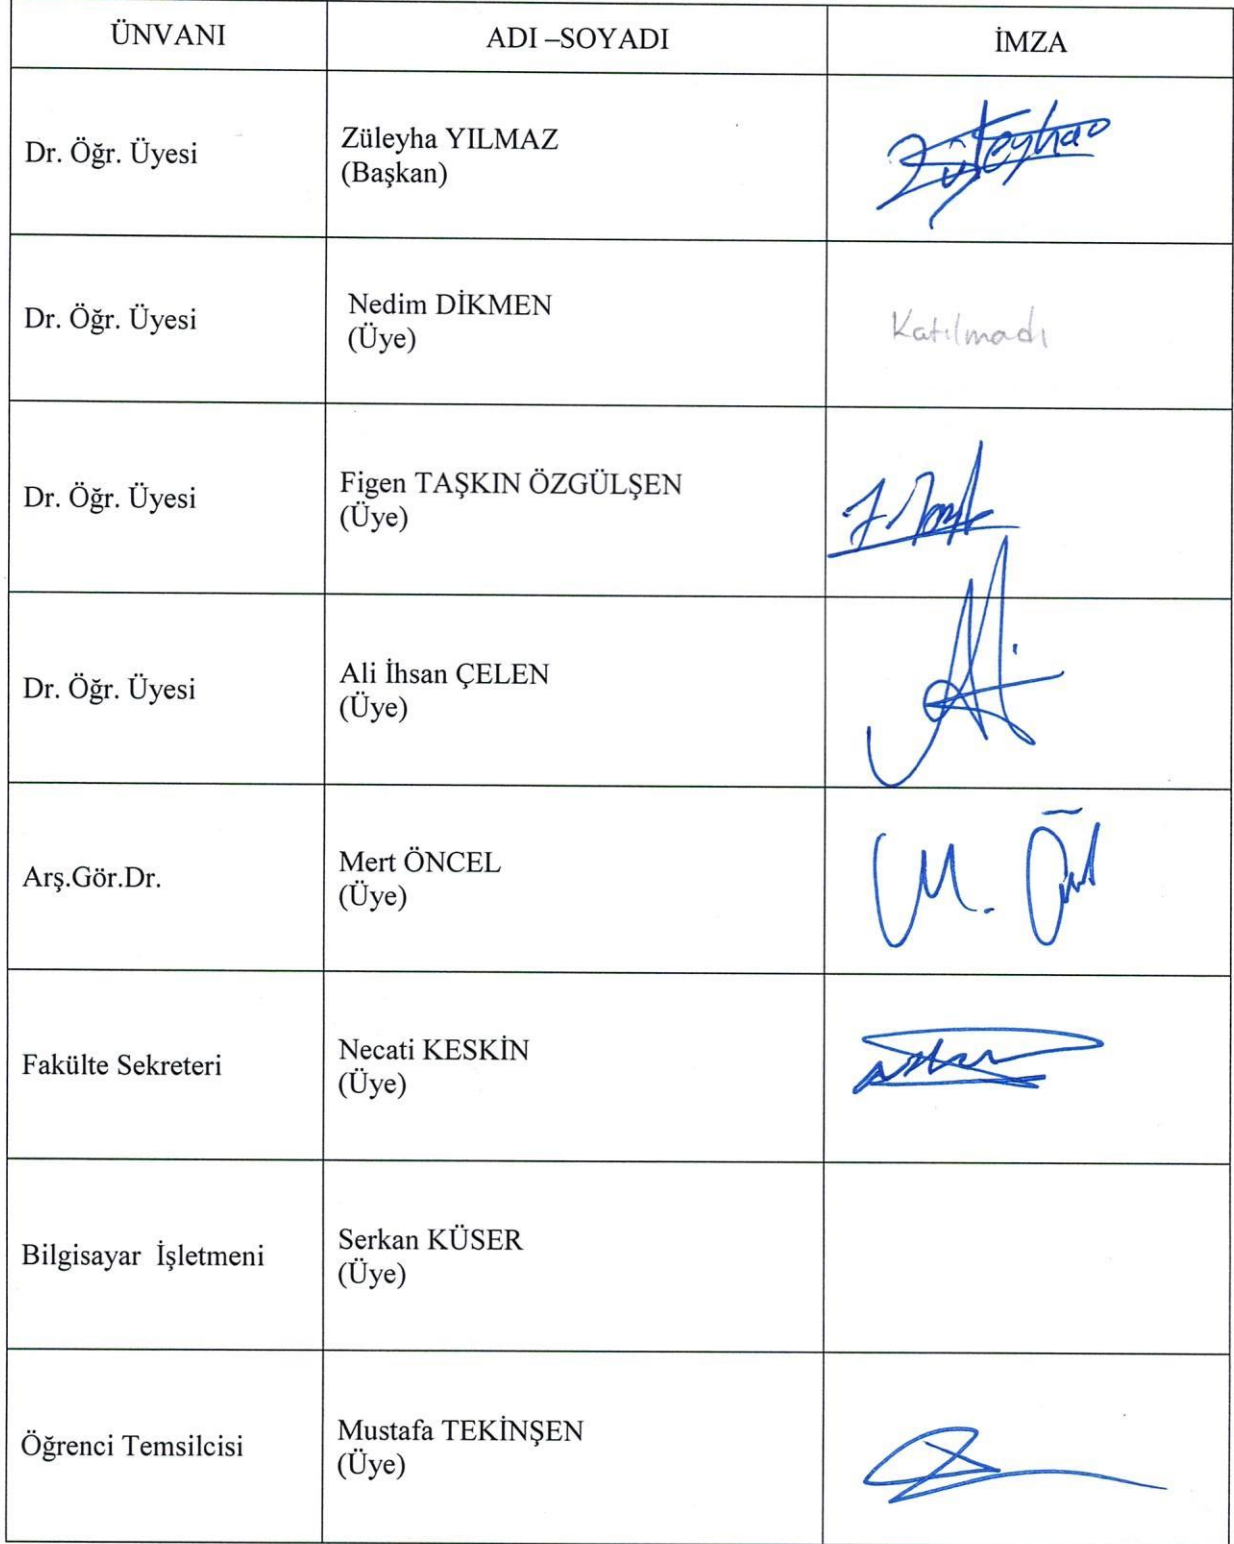 ÜNVANI
ADI –SOYADI
İMZA
Dr. Öğr. Üyesi
Züleyha YILMAZ
(Başkan)
Züleyha
Dr. Öğr. Üyesi
Nedim DİKMEN
(Üye)
Katılmadı
Dr. Öğr. Üyesi
Figen TAŞKIN ÖZGÜLŞEN
(Üye)
Dr. Öğr. Üyesi
Ali İhsan ÇELEN
(Üye)
Arş.Gör.Dr.
Mert ÖNCEL
(Üye)
Fakülte Sekreteri
Necati KESKİN
(Üye)
Bilgisayar İşletmeni
Serkan KÜSER
(Üye)
Öğrenci Temsilcisi
Mustafa TEKİNŞEN
(Üye)